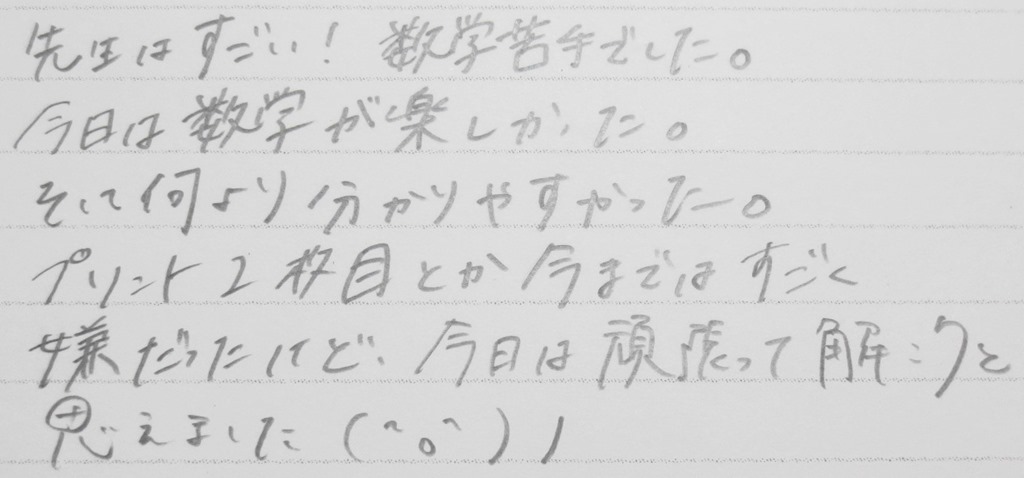 先生はすごい！数学苦手でした。
今日は数学が楽しかった。
そして何より分かりやすかったー。
プリント2枚目とか今まではすごく
嫌だったけど、今日は頑張って解こうと
思えました(^o^)ノ